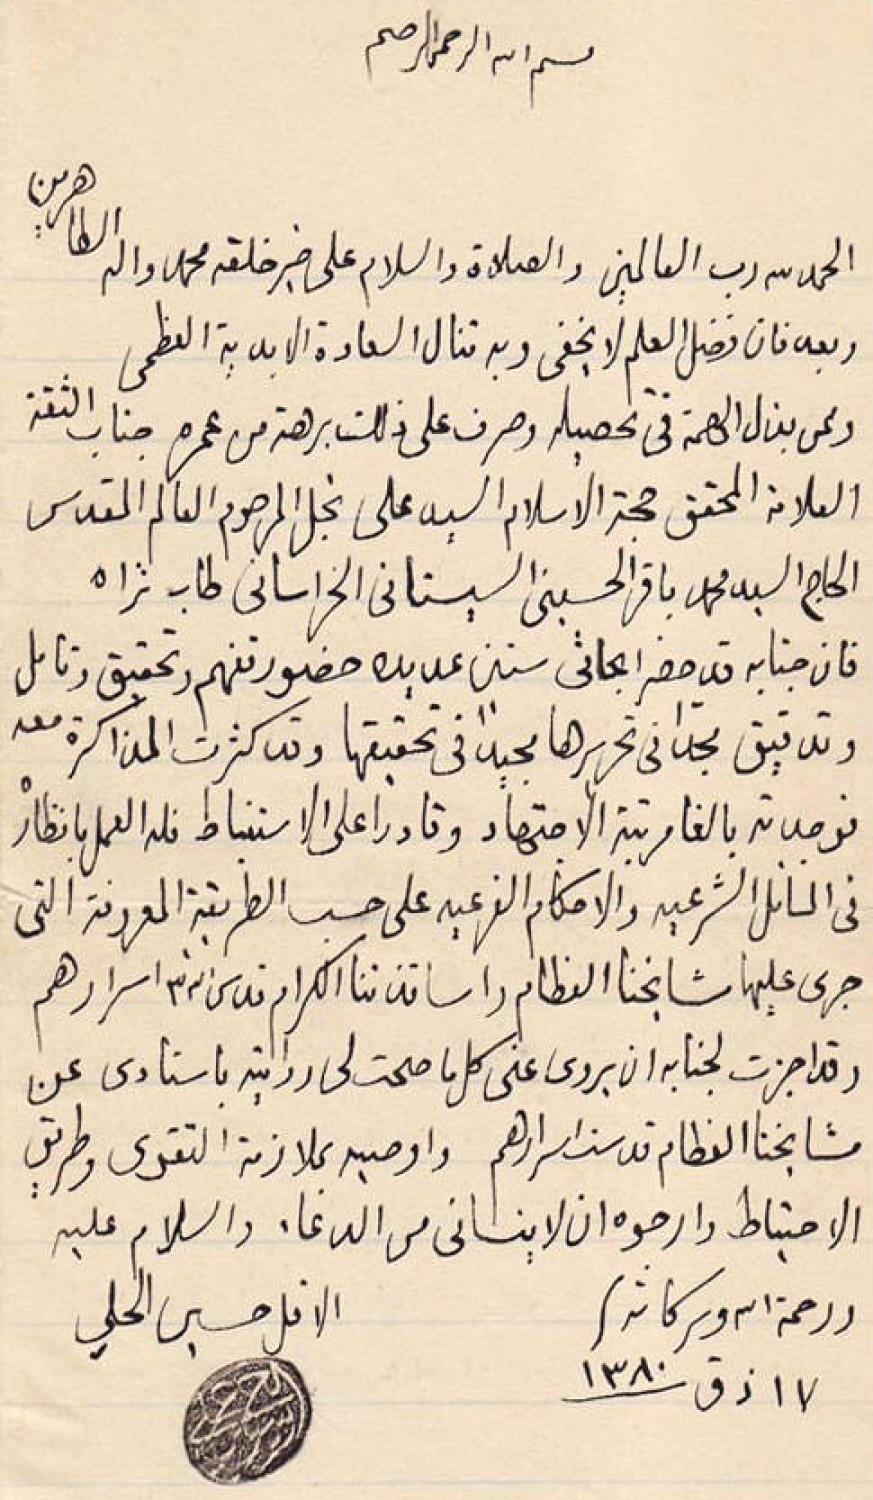 بسم الله الرحمن الرحيم
الحمد لله رب العالمين والصلاة والسلام على خير خلقه محمد واله الطاهرين
وبعد فان فضل العلم لا يخفى وبه تنال السعادة الابدية العظمى
وممن بذل الهمة في تحصيله وصرف على ذلك برهة من عمره جناب الثقة
العلامة المحقق حجة الاسلام السيد على نجل المرحوم العالم المقدس
الحاج السيد محمد باقر الحسيني السيستاني الخراساني طاب ثراه
فان جنابه قد حضر ابحاثي سنين عديده حضور تفهم وتحقيق وتامل
وتدقيق مجدّاً في تحريرها مجيداً في تحقيقها وقد كثرت المذاكرة معه
فوجدته بالغا مرتبة الاجتهاد وقادرا على الاستنباط فله العمل بانظاره
في المسائل الشرعيه والاحكام الفرعيه على حسب الطريقة المعروفة التي
جرى عليها مشايخنا العظام واساتذتنا الكرام قدس الله اسرارهم
وقد اجزت لجنابه ان يروى عني كل ما صحت لى روايته باسنادى عن
مشايخنا العظام قدست اسرارهم واوصيه بملازمة التقوى وطريق
الاحتياط وارجوه ان لا ينسانى من الدعاء والسلام عليه
ورحمة الله وبركاته
الاقل حسين الحلي
١٧ ذ ق ١٣٨٠